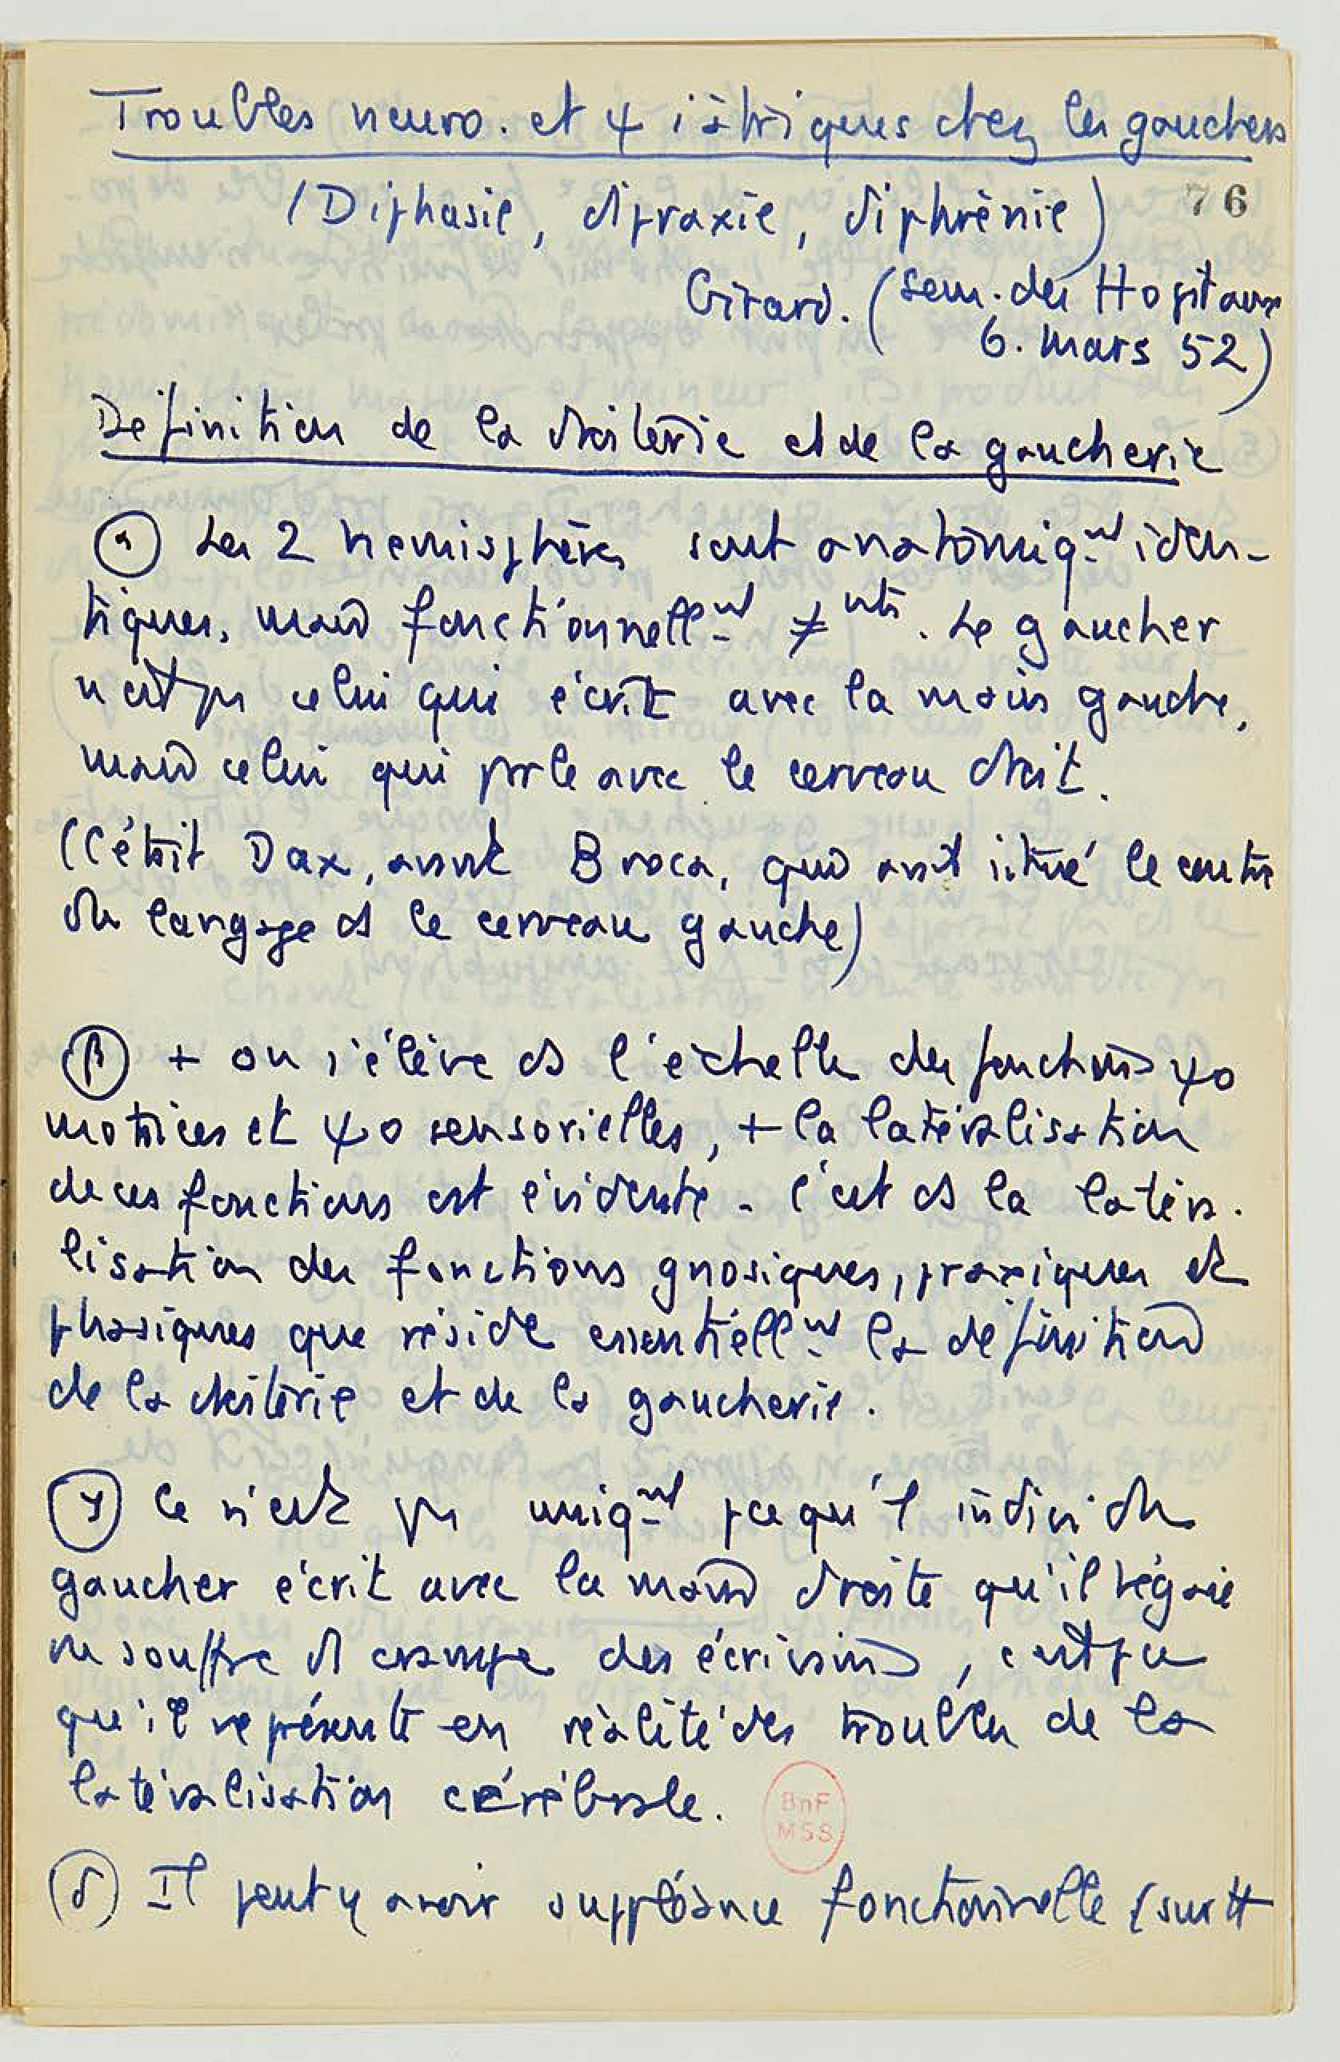 Troubles neuro. et ψ iatriques chez les gauchers
76
(Diphasie, dipraxie, diphrénie)
Girard. (Sem. des Hopitaux
6. mars 52)
Définition de la droiterie et de la gaucherie
α Les 2 hemisphères sont anatomiqnt iden-
tiques, mais fonctionnellnt ≠nts. Le gaucher
n'est pas celui qui écrit avec la main gauche,
mais celui qui parle avec le cerveau droit.
(C'était Dax, avant Broca, qui avait situé le centre
du langage ds le cerveau gauche)
β + on s'élève ds l'échelle des fonctions ψo
motrices et ψo sensorielles, + la latéralisation
de ces fonctions est évidente - c'est ds la latéra-
lisation des fonctions gnosiques, praxiques et
phasiques que réside essentiellnt la définition
de la droiterie et de la gaucherie.
γ Ce n'est pas uniqnt pce qu'1 individu
gaucher écrit avec la main droite qu'il bégaie
ou souffre d crampe des écrivains, c'est pce
qu'il représente en réalité des troubles de la
latéralisation cérébrale.
BnF
MSS
δ Il peut y avoir suppléance fonctionnelle (surtt